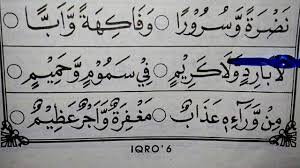 نَضْرَةً وَّسُرُوْرًا ○ وَفَاكِهَةً وَّاَبًّا ○
لَا بَارِدٍ وَّلَا كَرِيْمٍ ○ فِيْ سَمُوْمٍ وَّحَمِيْمٍ ○
مِنْ وَّرَآءِهٖ عَذَابٌ ○ مَغْفِرَةٌ وَّاَجْرٌ عَظِيْمٌ ○
IQRO'6